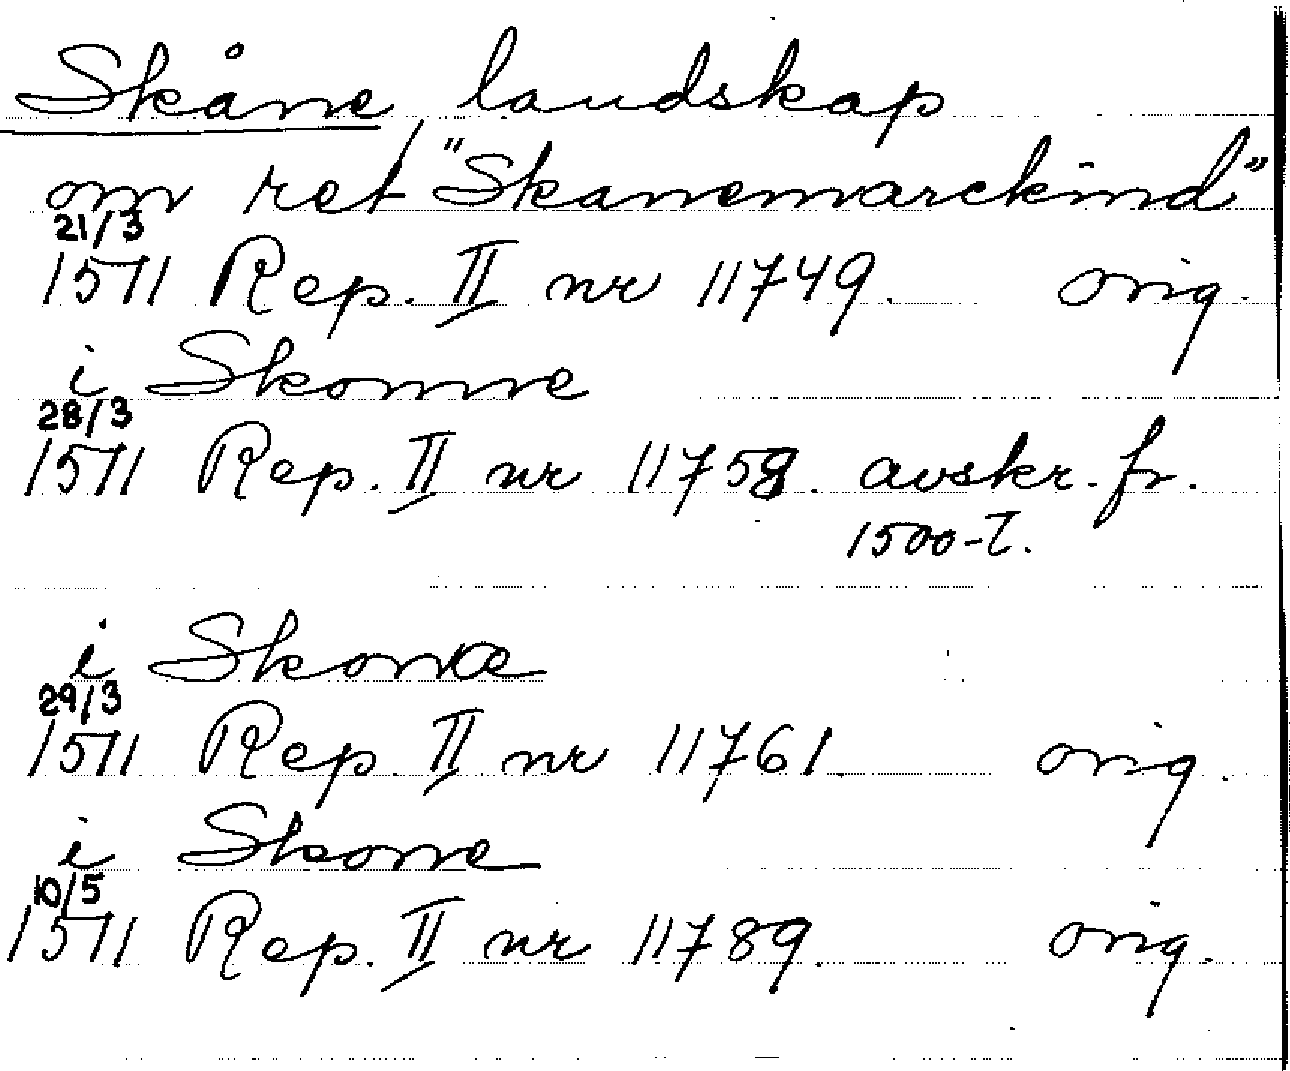 Skåne, landskap
om ret "Skanemarckind"
21/3
1571 Rep. II nr 11749. orig.
i Skonne
28/3
1571 Rep. II nr 11758. avskr. fr.
1500-t.
i Skonæ
29/3
1571 Rep. II nr 11761. orig.
i Skone
10/5
1571 Rep. II nr 11789. orig.